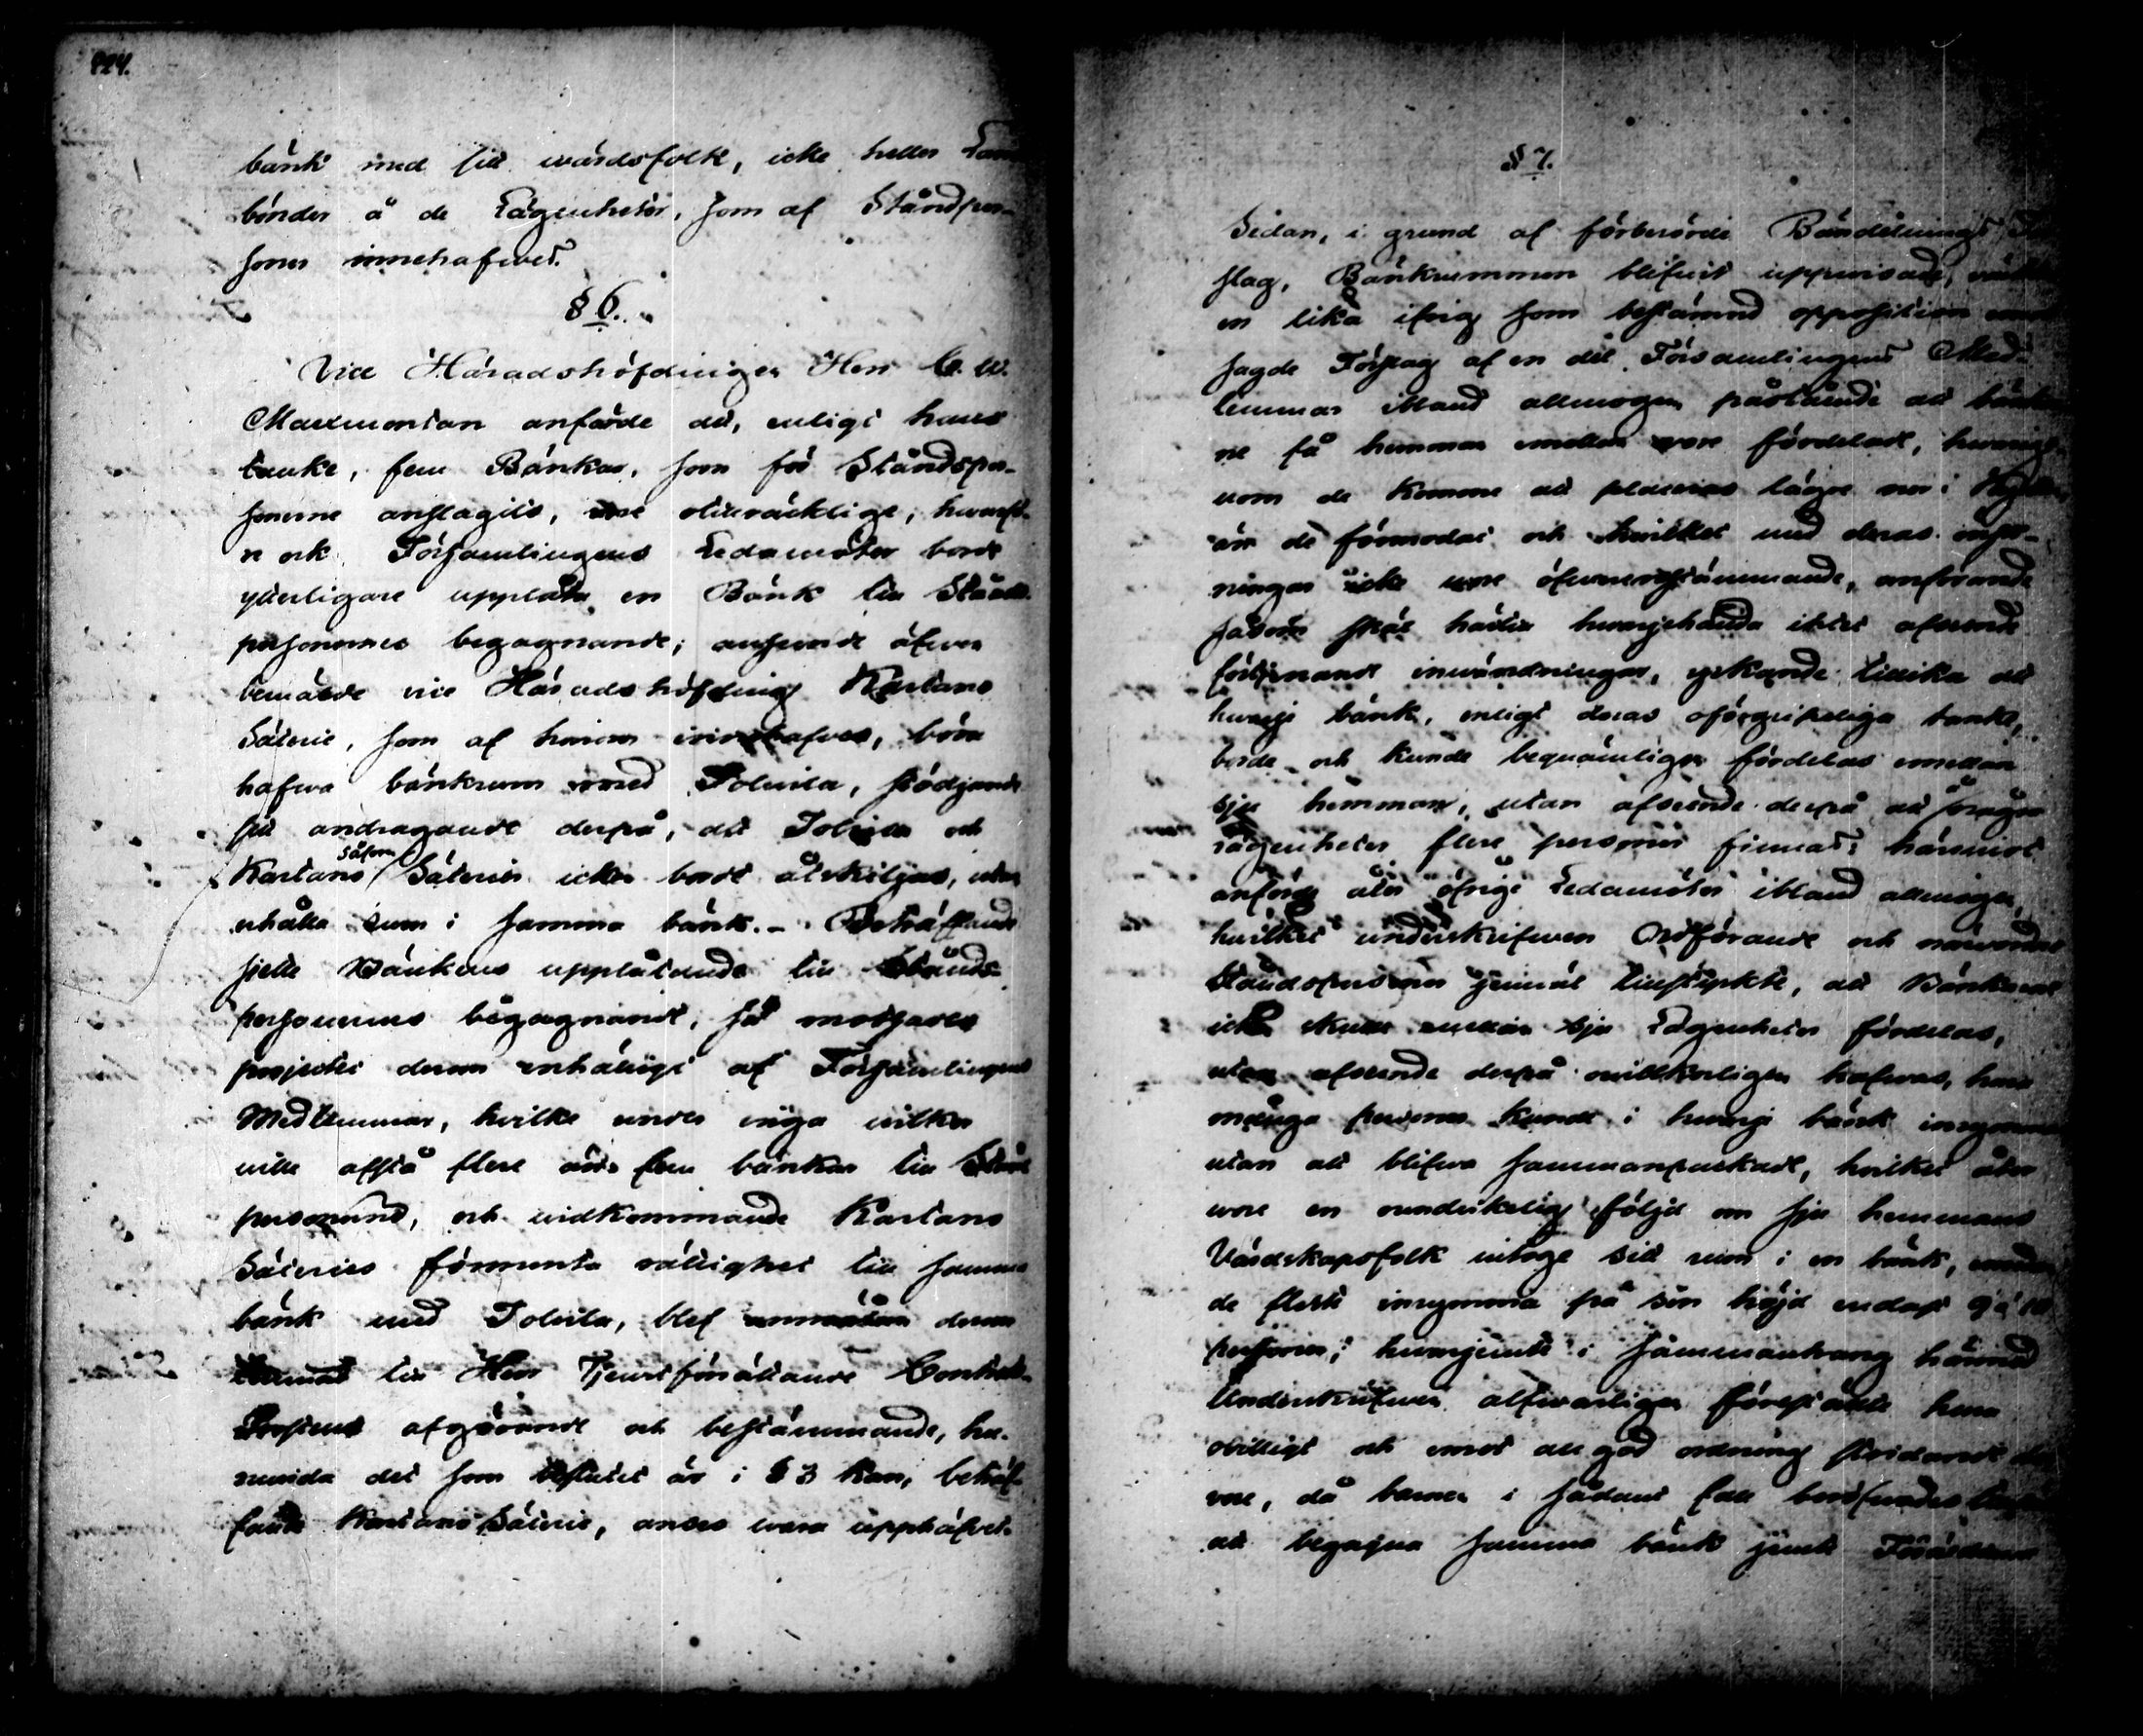 bänk med sitt wärdsfolk, icke heller
bönder å de Lägenheter, som af Ståndper-
soner innehafwes.
§ 6.
Vice Häradshöfdingen Herr C. W.
anförde att, enligt hans
tanke, fem Bänkar, som för Ståndsper-
sonerne anslagits, wore otillräcklige, hwarföre
ock Församlingens Ledamöter borde
ytterligare upplåta en Bänk till Stånds-
personernes begagnande; anseende äfwen
bemälde vice Häradshöfding Kartano
Säterie, som af honom innehafwes, böra
hafwa bänkrum med Tolvila, stödjande
sitt andragande derpå, att Tolvila och
Kartano såsom Säterier icke borde åtskiljas, utan
erhålla rum i samma bänk. - Beträffande
sjette Bänkens upplåtande till Stånds-
personernes begagnande, så motsades
projectet derom enhälligt af Församlingens
Medlemmar, hvilke under inga vilkor
ville afstå flere än fem bänkar till Stånds
personernes, och vidkommande Kartano
Säteries förmenta rättighet till samma
bänk med Tolvila, blef derom
till Herr Tjenstförrättande Contracts-
Prostens afgörande och bestämmande, hu-
ruvida det som beslutet är i § 3 kan, beträf-
fande Kartano Säterie, anses wara upphäfvet.
§ 7.
Sedan, i grund af förberörde Bänkdelnings
slag, Bänkrummen blifwit uppwisade,
en lika ifrig som bestämd opposition
sagde Förslag af en del Församlingens Med-
lemmar ibland allmogen påstående att
ne få hemman emellan wore fördelade, hwarige-
nom de komme att placeras lägre ner i
än de förmodat och hwilket med deras
ningar icke wore öfwerensstämmande, anförande
såsom skäl härtill hwarjehanda intet afseende
förtjenande inwändningar, yrkande tillika att
hwarje bänk, enligt deras oförgripeliga tanke,
borde och kunde beqwämligen fördelas emellan
sju hemman, utan afseende derpå att å några
Lägenheter flere personer finnas: häremot
anförde åter öfrige Ledamöter ibland allmogen,
hwilket underskrifwen Ordförande och närwarande
Ståndspersoner jemväl tillstyrkte, att
icke skulle emellan sju Lägenheter fördelas,
utan afseende derpå ovillkorligen hafwas, huru
många personer kunde i hwarje bänk inrymmas
utan att blifwa sammanpackade, hvilket åter
wore en ounvikelig följd om sju hemmans
Värdskapsfolk intoge sitt rum i en bänk,
de flesta inrymma på sin höjd endast 9 à 10
personer; hwarjemte i sammanhang härmed
Underskrifwen alfwarligen föreställte huru
owilligt och emot all god ordning stridande
vore, då barnen i sådant fall
att begagna samma bänk jemte Föräldrarne